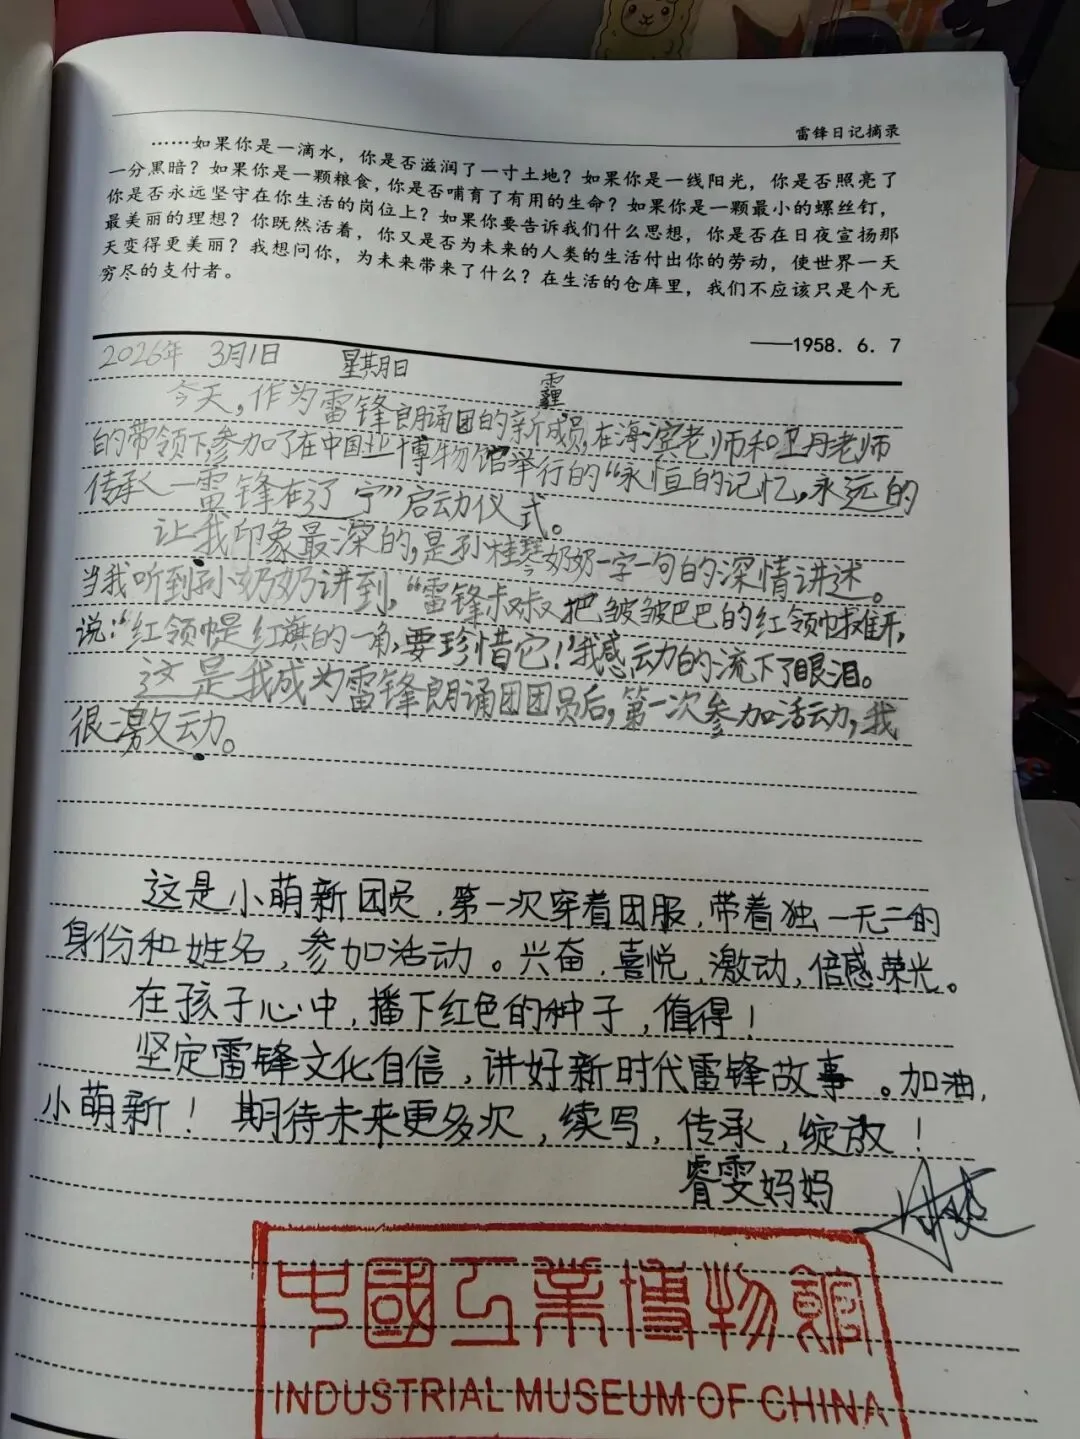 雷锋日记摘录
……如果你是一滴水，你是否滋润了一寸土地？如果你是一线阳光，你是否照亮了
一分黑暗？如果你是一颗粮食，你是否哺育了有用的生命？如果你是一颗最小的螺丝钉，
你是否永远坚守在你生活的岗位上？如果你要告诉我们什么思想，你是否在日夜宣扬那
最美丽的理想？你既然活着，你又是否为未来的人类的生活付出你的劳动，使世界一天
天变得更美丽？我想问你，为未来带来了什么？在生活的仓库里，我们不应该只是个无
穷尽的支付者。
——1958．6．7
2026年 3月1日 星期日 霾
今天，作为雷锋朗诵团的新成员，在海滨老师和卫丹老师
的带领下，参加了在中国工业博物馆举行的“永恒的记忆，永远的
传承人—雷锋在辽宁”启动仪式。
让我印象最深的，是孙桂琴奶奶一字一句的深情讲述。
当我听到孙奶奶讲到，“雷锋叔叔把皱皱巴巴的红领巾摊开，
说：“红领巾是红旗的一角，要珍惜它！”我感动的流下了眼泪。
这是我成为雷锋朗诵团团员后，第一次参加活动，我
很激动。
这是小萌新团员，第一次穿着团服，带着独一无二的
身份和姓名，参加活动。兴奋，喜悦，激动，倍感荣光。
在孩子心中，播下红色的种子，值得！
坚定雷锋文化自信，讲好新时代雷锋故事。加油，
小萌新！期待未来更多次，续写，传承，绽放！
睿雯妈妈
中國工業博物館
INDUSTRIAL MUSEUM OF CHINA